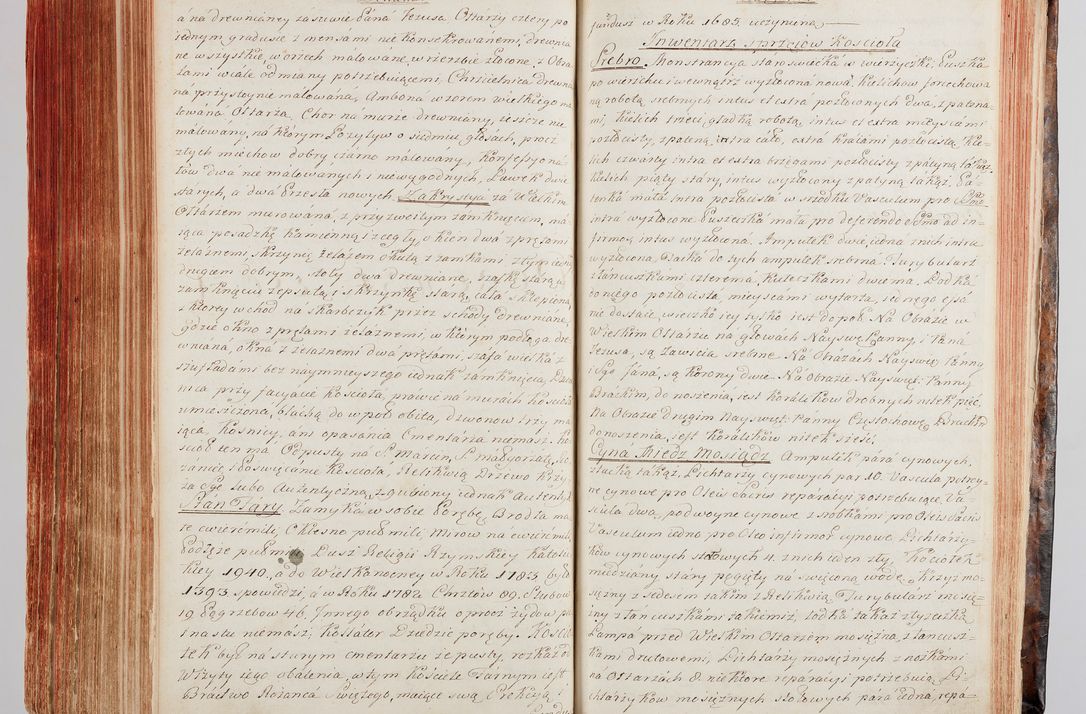 á ná drewnianey zásuwie Páná Jezusa. Ołtárzy cztery po
iednym gradusie z mensámi nie konsekrowánemi, drewnia
ne wszystkie, w oriech málowáne, w rzezbie złocone, z Obra
zámi wiele odmiány potrzebuiącemi, Chrzcielnica drewnia
ná przystoynie málowána, Amboná wzorem wielkiego ma
lowáná Ołtarza. Chor na murze drewniány, ieszcze nie
málowány, ná ktorym Pozytyw o siedmiu głosách, procz
złych miechow dobry czarno málowány, Konfessyoná
łow dwá nie málowanych i niewygodnych, Ławek dwie
stárych, a dwá krzesła nowych. Zakrystya zá Wielkim
Ołtárzem murowána, z przyzwoitym zamknięciem, má
iąca posadzkę kámienną i z cegły, okien dwa z prętámi
żelaznemi, skrzynię żelazem okutą z zamkámi złym iednym
drugiem dobrym, stoły dwa drewniáne, száfkę stárą w
zámknięciu zepsutą, i skrzynkę stárą, cáła sklepiona
z ktorey wchod ná skárbczyk przez schody drewniáne,
gdzie okno z prętami żelaznemi, w ktorym podłoga dre
wniáná, okná z żelaznemi dwá prętámi, száfa wielká z
szufládami bez naymnieyszego iednak zámknięcia, Dzwo
nica przy facyacie kościoła, práwie ná murach kościoła
umieszczoná, bláchą do w puł obitá, dzwonow trzy má
iąca, Kosnicy, áni opasánia Cmentarza niemasz. Ko
scioł ten ma Odpusty ná S. Marcin, S. Małgorzatę, Ro
żániec i doświęcánie Kościoła, Relikwią Drzewo Krzy
żá Sgo lubo Autentyczną, z zgubioną iednak Autentyką
Pránż Táry. Zámyka w sobie Porębę, Brodłá ma
łe ćwierćmili, Okleśno puł mili, Mirow ná ćwierćmili,
Podłęże puł mili. Dusz Religii Rzymskiey Kátolic
kiey 1940. a do Wielkánocney w Roku 1783 było
1393 spowiedzi, á w Roku 1782 Chrztow 89. Slubow
19 Pogrzebow 46. Innego obrządku oprocz żydow pu
stnastu niemasz; Kollátor Dziedzic poręby. Kościo
łek był ná stárym cmentarzu ale pusty, rozkáz od
Wizyty iego obálenia, w tym Kościele Fárnym iest
Bractwo Rożáncá Swiętego, maiące swą Erekcyą i
fundusz w Roku 1685. uczynioną
Inwentarz sprzętow Kościoła
Srebro. Monstráncya staroświecka w wierzyczki, Puszka
po wierzchu i wewnątrz wyzłocona nowá, Kielichow forechowa
ną robotą srebrnych intus et extra pozłoconych dwá, z patena
mi, Kielich trzeci, gładką robotą, intus et extra mieyscámi
pozłocisty, z pateną, intra cáłe, extra kráiami pozłocistą, Kie
lich czwárty intra et extra brzegámi pozłocisty z pátyną tákąż
Kielich piąty stáry, intus wyzłocony z patyną tákąż. Pá
tenka máła intra pozłocista w srzodku Vasculum pro SSmo
intra wyzłocone Puszeczka máła pro deferendo SSmo ad in-
firmos, intus wyzłocona. Ampułek dwie, iedna z nich intra
wyzłocona. Tácka do tych ampułek srebrna. Turybularz
z łáncuszkámi czterema, kuleczkámi dwiema. Łodka
do niego pozłocista, mieyscámi wytarta, iednego epsá
nie dostáie, wieczko iey tylko iest do poł. Ná Obrázie w
Wielkim Ołtárzu ná głowách Nayswę: Panny, i Páná
Jezusa, są Zawicia srebrne. Ná Obrázach Nayswę: Panny
i Sgo Jána, są korony dwie. Ná Obrázie Nayswięt: Panny
Bráckim, do noszenia, iest koralikow drobnych nitek pięć.
Ná Obrázie drugim Nayswięt: Pánny Częstochows: Brackim
do noszenia, iest Korálikow nitek sześć.
Cyna Miedz Mosiądz. Ampułek pára cynowych,
z tácką tákąż, Lichtárzy cynowych par 10. Vascula potroy-
ne cynowe pro Oleis Sacris reparacyi potrzebuiące, Va-
scula dwá, podwoyne cynowe z srobkámi pro Oleis Sacris
Vasculum iedno pro Oleo infirmor: cynowe, Lichtarzy-
kow cynowych stołowych 4. z nich ieden zły. Kociołek
miedziány stáry pogięty ná święconą wodę, Krzyż mo-
siężny z Sedesem tákim z Relikwią, Turybularz mosię-
żny z łancuszkámi tákiemiż, łodká tákáż z łyżeczką
Lampá przed Wielkim Ołtárzem mosiężna z łáncusz-
kámi drutowemi, Lichtárzy mosiężnych z nożkámi
ná Ołtarzách 8. niektore reparacyi potrzebuią, Li-
chtárzykow mosiężnych stołowych pára iedna, repa-